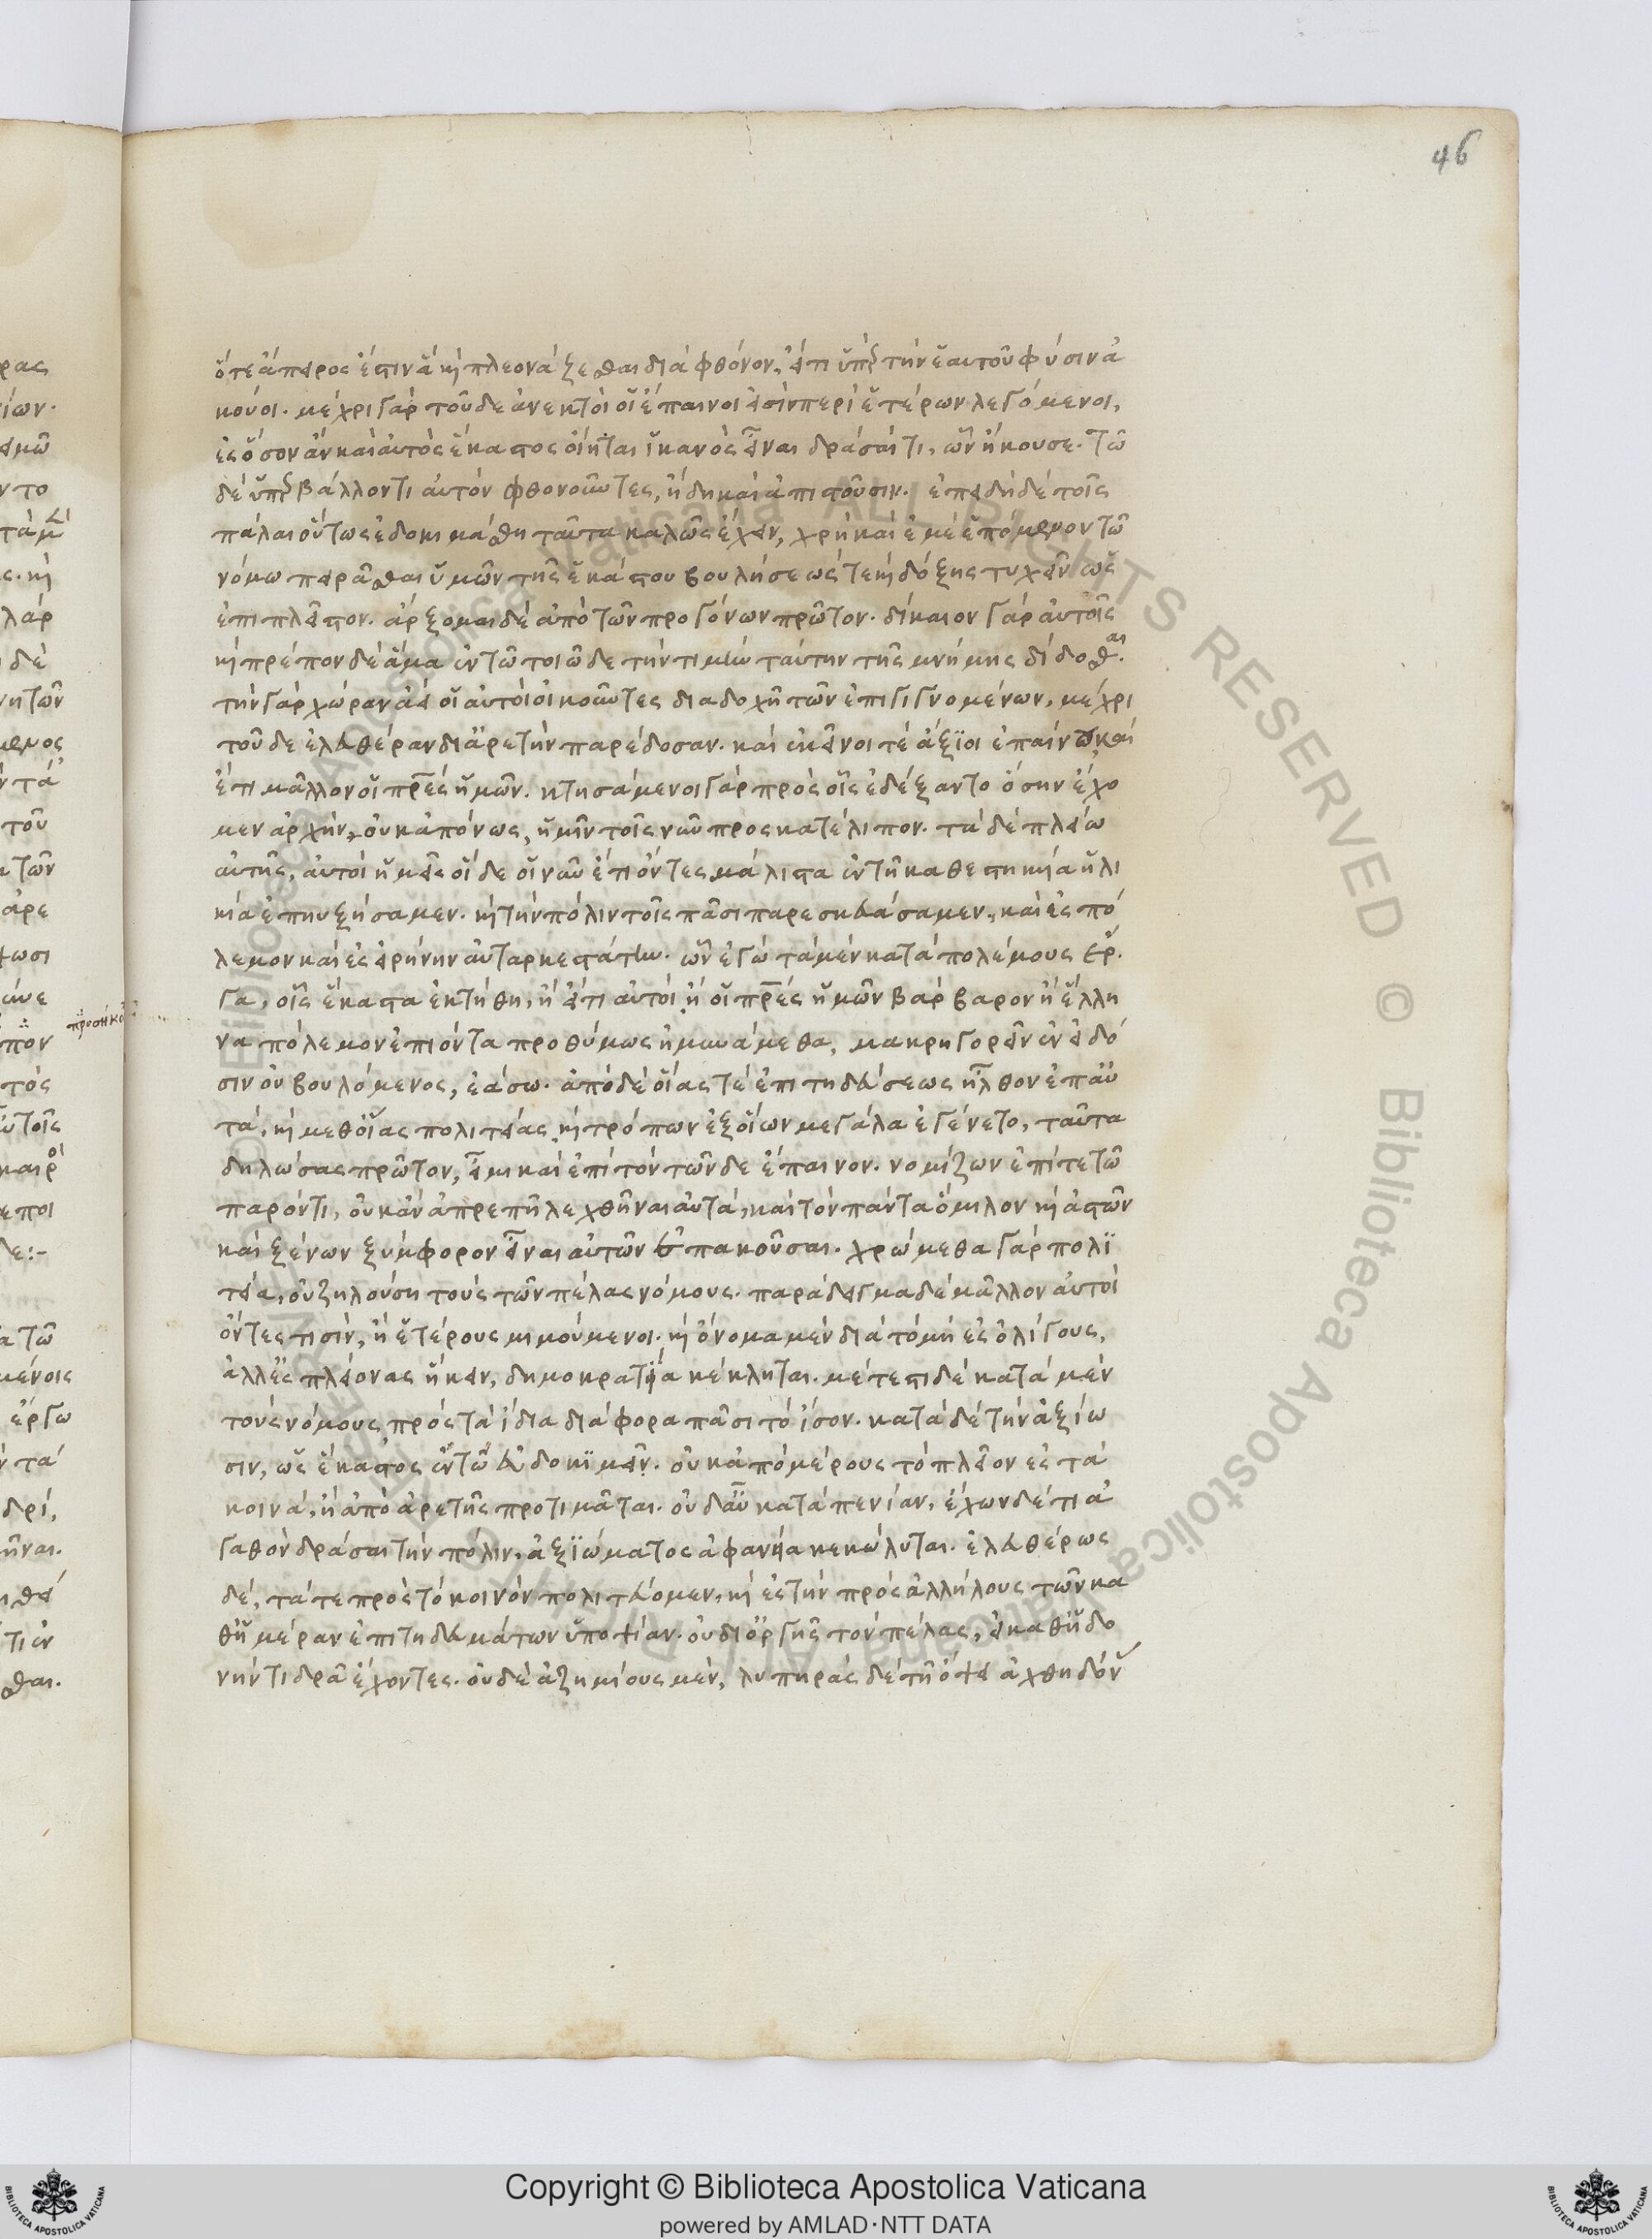 46
ὅ τε ἄπειρος ἔστιν ἃ κὶ πλεονάζεσθαι διὰ φθόνον, εἴ τι ὑπὲρ τὴν ἑαυτοῦ φύσιν ἀ
κούοι. μέχρι γὰρ τοῦδε ἀνεκτοὶ οἱ ἔπαινοι εἰσὶν περὶ ἑτέρων λεγόμενοι,
ἐς ὅσον ἂν καὶ αὐτὸς ἕκαστος οἴηται ἱκανὸς εἶναι δρᾶσαί τι, ὧν ἤκουσε. τῶ
δὲ ὑπερβάλλοντι αὐτὸν φθονοῦντες, ἤδη καὶ ἀπιστοῦσιν. ἐπειδὴ δὲ τοῖς
πάλαι οὕτως ἐδοκιμάσθη ταῦτα καλῶς ἔχειν, χρὴ καὶ ἐμὲ ἑπόμενον τῶ
νόμω πειρᾶσθαι ὑμῶν τῆς ἑκάστου βουλήσεώς τε κὶ δόξης τυχεῖν ὡς
ἐπιπλεῖστον. ἄρξομαι δὲ ἀπὸ τῶν προγόνων πρῶτον. δίκαιον γὰρ αὐτοῖς
κὶ πρέπον δὲ ἅμα ἐν τῶ τοιῶδε τὴν τιμὴν ταύτην τῆς μνήμης δίδοσθαι.
τὴν γὰρ χώραν ἀεὶ οἱ αὐτοὶ οἰκοῦντες διαδοχῆ τῶν ἐπιγιγνομένων, μέχρι
τοῦδε ἐλευθέραν δι ἀρετὴν παρέδοσαν. καὶ ἐκεῖνοί τε ἄξιοι ἐπαίνου, καὶ
ἔτι μᾶλλον οἱ πρες ἡμῶν. κτησάμενοι γὰρ πρὸς οἷς ἐδέξαντο ὅσην ἔχο
μεν ἀρχὴν, οὐκ ἀπόνως, ἡμῖν τοῖς νῦν προςκατέλιπον. τὰ δὲ πλείω
αὐτῆς, αὐτοὶ ἡμεῖς οἵδε οἱ νῦν ἔτι ὄντες μάλιστα ἐν τῆ καθεστηκυία ἡλι
κία ἐπηυξήσαμεν. κὶ τὴν πόλιν τοῖς πᾶσι παρεσκευάσαμεν, καὶ ἐς πό
λεμον καὶ ἐς εἰρήνην αὐταρκεστάτην. ὧν ἐγὼ τὰ μὲν κατὰ πολέμους ἔρ
γα, οἷς ἕκαστα ἐκτήθη, ἢ εἴ τι αὐτοὶ ἢ οἱ πρες ἡμῶν βάρβαρον ἢ ἕλλη
να πόλεμον ἐπιόντα προθύμως ἠμυνάμεθα, μακρηγορεῖν ἐν εἰδό
σιν οὐ βουλόμενος, ἐάσω. ἀπὸ δὲ οἵας τέ ἐπιτηδεύσεως ἤλθον ἐπ αὐ
τά, κὶ μεθ οἵας πολιτείας, κὶ τρόπων ἐξ οἵων μεγάλα ἐγένετο, ταῦτα
δηλώσας πρῶτον, εἶμι καὶ ἐπὶ τὸν τῶνδε ἔπαινον. νομίζων ἐπί τε τῶ
παρόντι, οὐκ ἂν ἀπρεπῆ λεχθῆναι αὐτά, καὶ τὸν πάντα ὅμιλον κὶ ἀστῶν
καὶ ξένων ξύμφορον εἶναι αὐτῶν ἐπακοῦσαι. χρώμεθα γὰρ πολι
τεία, οὐ ζηλούση τοὺς τῶν πέλας νόμους. παράδειγμα δὲ μᾶλλον αὐτοὶ
ὄντες τισίν, ἢ ἑτέρους μιμούμενοι. κὶ ὄνομα μὲν διὰ τὸ μὴ ἐς ὀλίγους,
ἀλλ ἐς πλείονας ἥκειν, δημοκρατία κέκληται. μέτεστι δὲ κατὰ μὲν
τοὺς νόμους, πρὸς τὰ ἴδια διάφορα πᾶσι τὸ ἴσον. κατὰ δὲ τὴν ἀξίω
σιν, ὡς ἕκαστος ἔν τω εὐδοκιμεῖ. οὐκ ἀπὸ μέρους τὸ πλεῖον ἐς τὰ
κοινά, ἢ ἀπὸ ἀρετῆς προτιμᾶται. οὐδ αὖ κατὰ πενίαν, ἔχων δέ τι ἀ
γαθὸν δρᾶσαι τὴν πόλιν, ἀξιώματος ἀφανεία κεκώλυται. ἐλευθέρως
δέ, τά τε πρὸς τὸ κοινὸν πολιτεύομεν, κὶ ἐς τὴν πρὸς ἀλλήλους τῶν κα
θ ἡμέραν ἐπιτηδευμάτων ὑποψίαν. οὐ δι ὀργῆς τὸν πέλας, εἰ καθ ἡδο
νήν τι δρᾶ ἔχοντες. οὐδὲ ἀζημίους μέν, λυπηρὰς δὲ τῆ ὄψει ἀχθηδόν
Copyright © Biblioteca Apostolica Vaticana
powered by AMLAD·NTT DATA